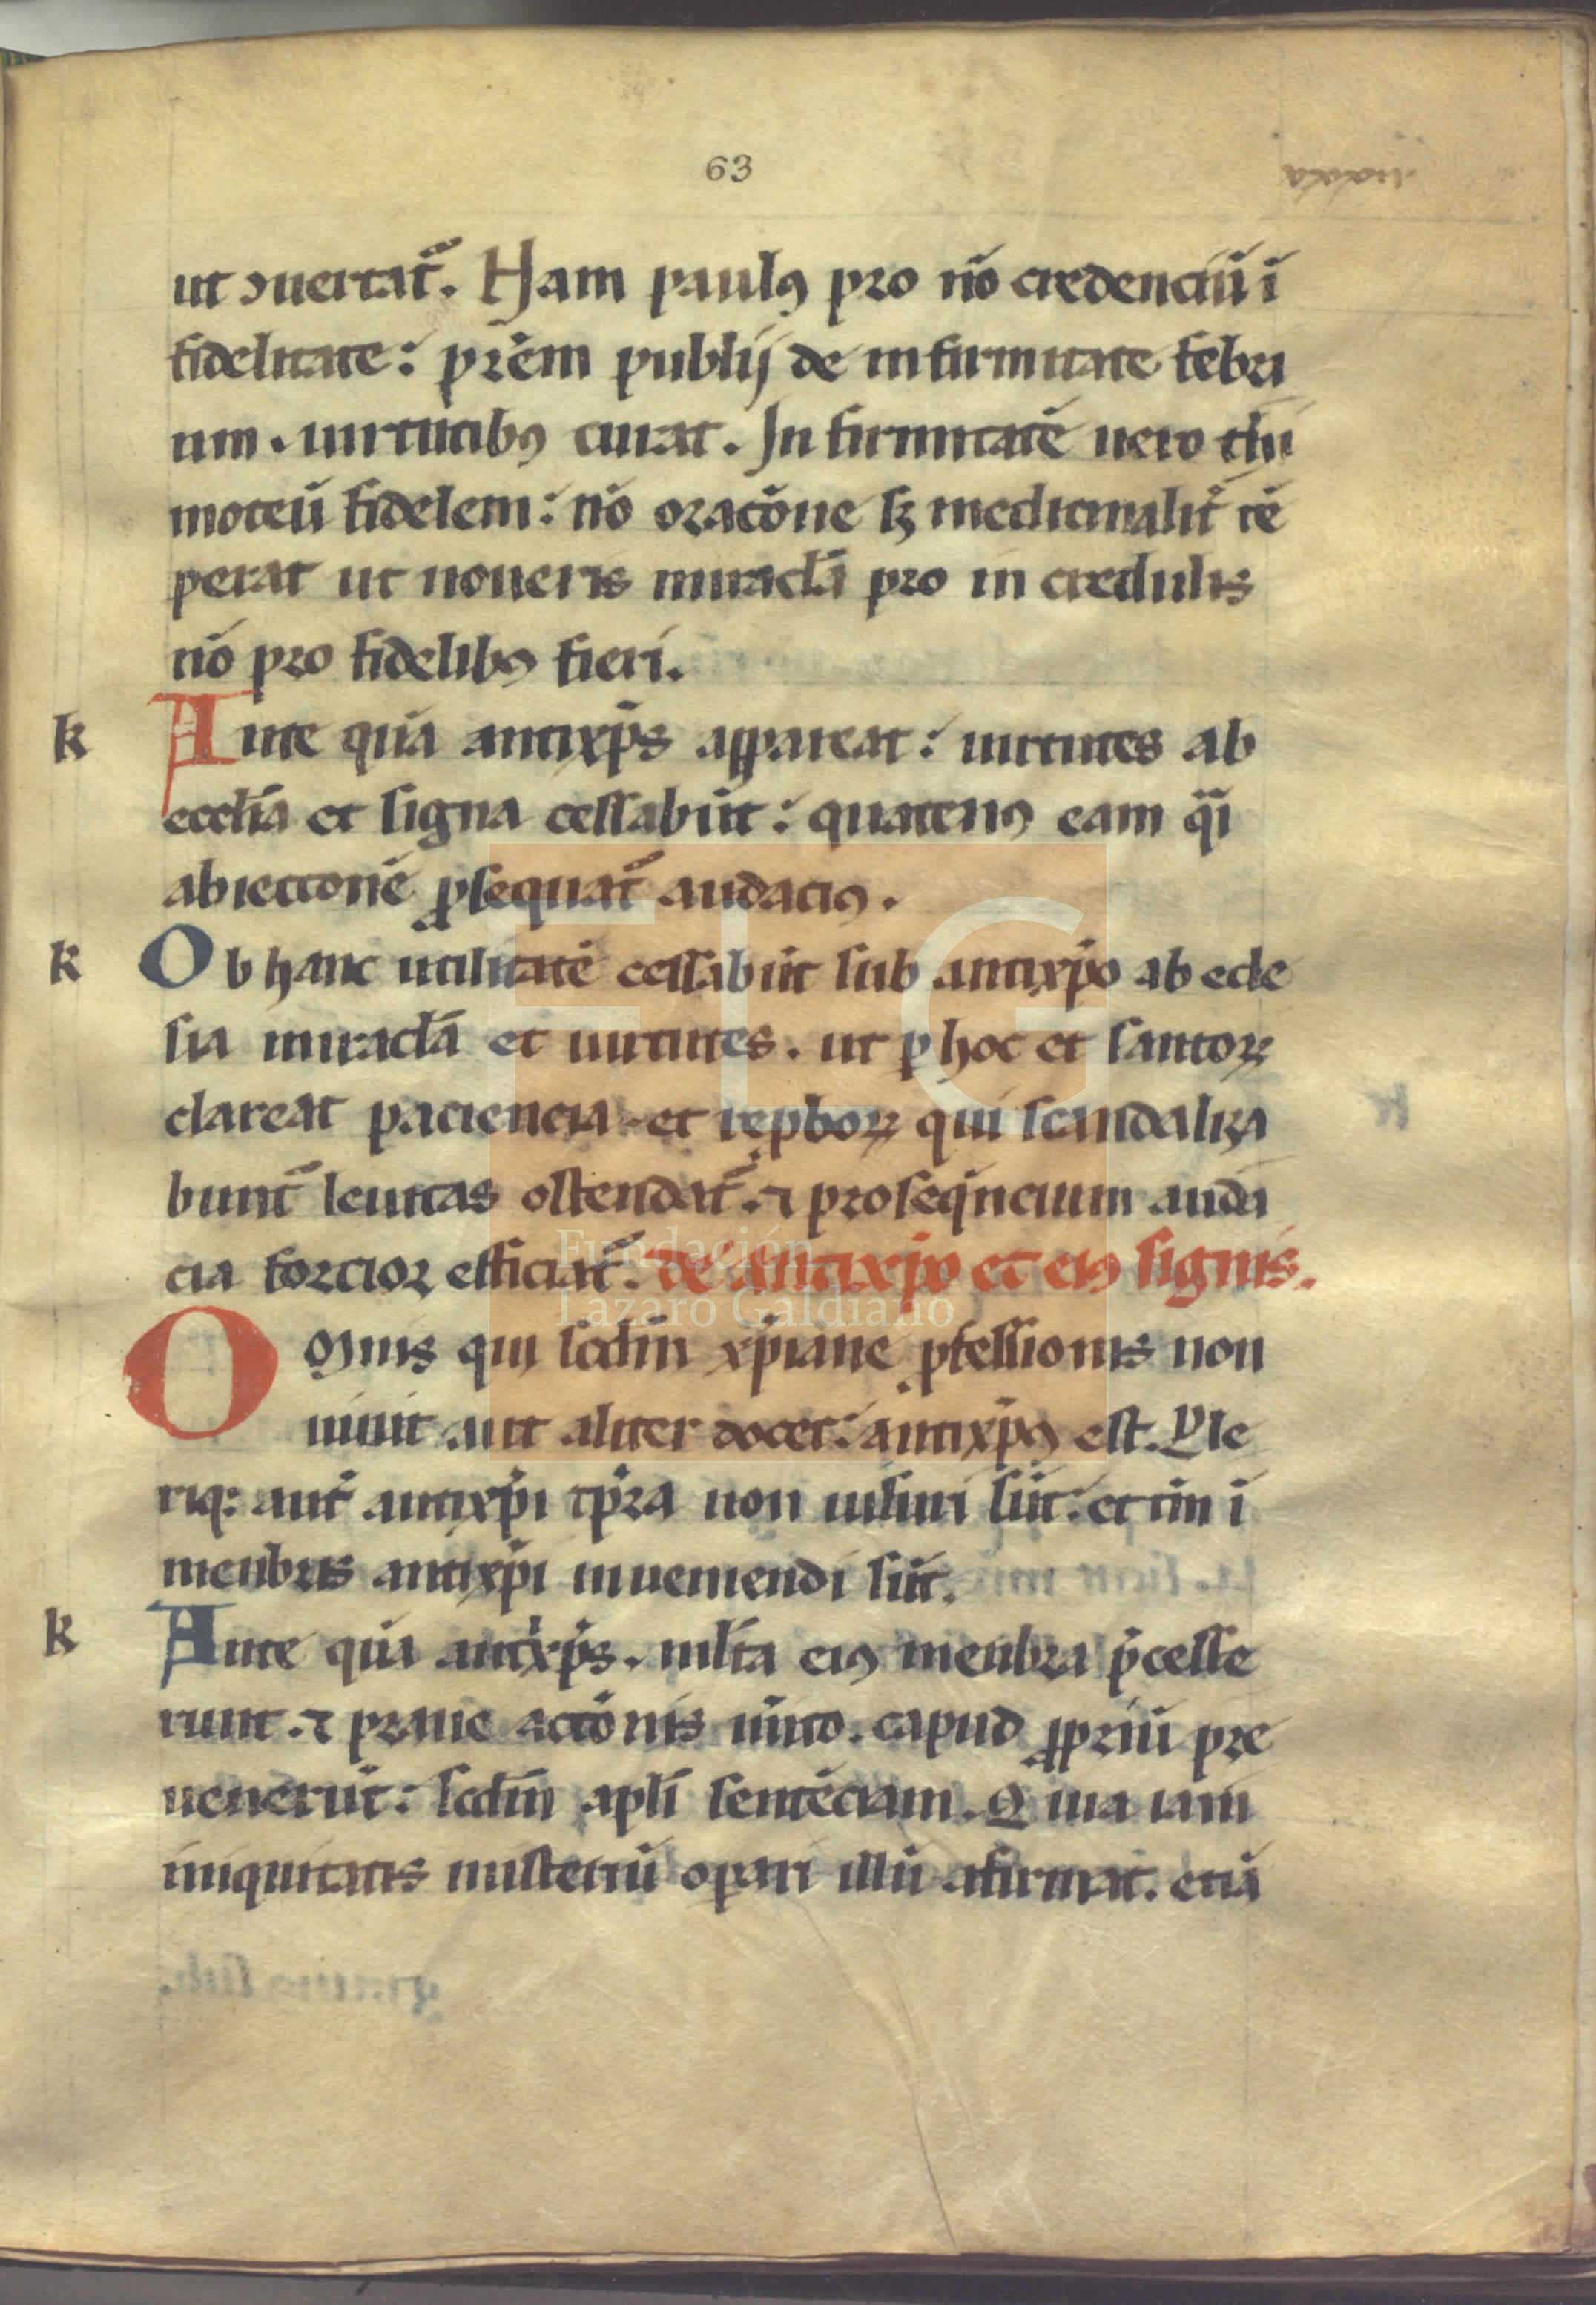 63
ut ↄuertat᷑. Nam paulꝰ pro nō credenciū ī
fidelitate: pr̄em publij de infirmitate febri
um. uirtutibꝰ curat. Infirmitatē uero thi
moteū fidelem: nō oracōne sꝫ medicinalit᷑ tē
perat ut noueris miracl̄a pro in credulis
nō pro fidelibꝰ fieri.
k
Ante quā antixp̄s appareat: uirtutes ab
eccl̄ia et signa cessabūt: quatenꝰ eam q̄i
abiectionē ꝓsequat᷑ audaciꝰ.
k
Ob hanc utilitatē cessabūt sub antixp̄o ab ecle
sia miracl̄a et uirtutes. ut ꝑ hoc et santoꝝ
clareat paciencia et reꝓboꝝ qui scandaliza
bunt᷑ leuitas ostendat᷑. ⁊ prosequēncium auda
cia forcior efficiat᷑. de antixp̄o et eiꝰ signis.
Omnis qui scd̄m xp̄iane ꝓfessionis non
uiuit aut aliter docet: antixp̄ꝰ est. Ple
riq: aut᷑ antixp̄i tp̄ra non uisuri sūt: et tm̄ ī
menbris antixp̄i inueniendi sūt.
k
Ante quā antixp̄s. mlt̄a eiꝰ menbra p̄cesse
runt. ⁊ praue actōnis mīto. capud ꝓpriū pre
uenerūt: scd̄m apl̄i sentēciam. Quia iam
iniquitatis misteriū oꝑari illū afirmat. etiā